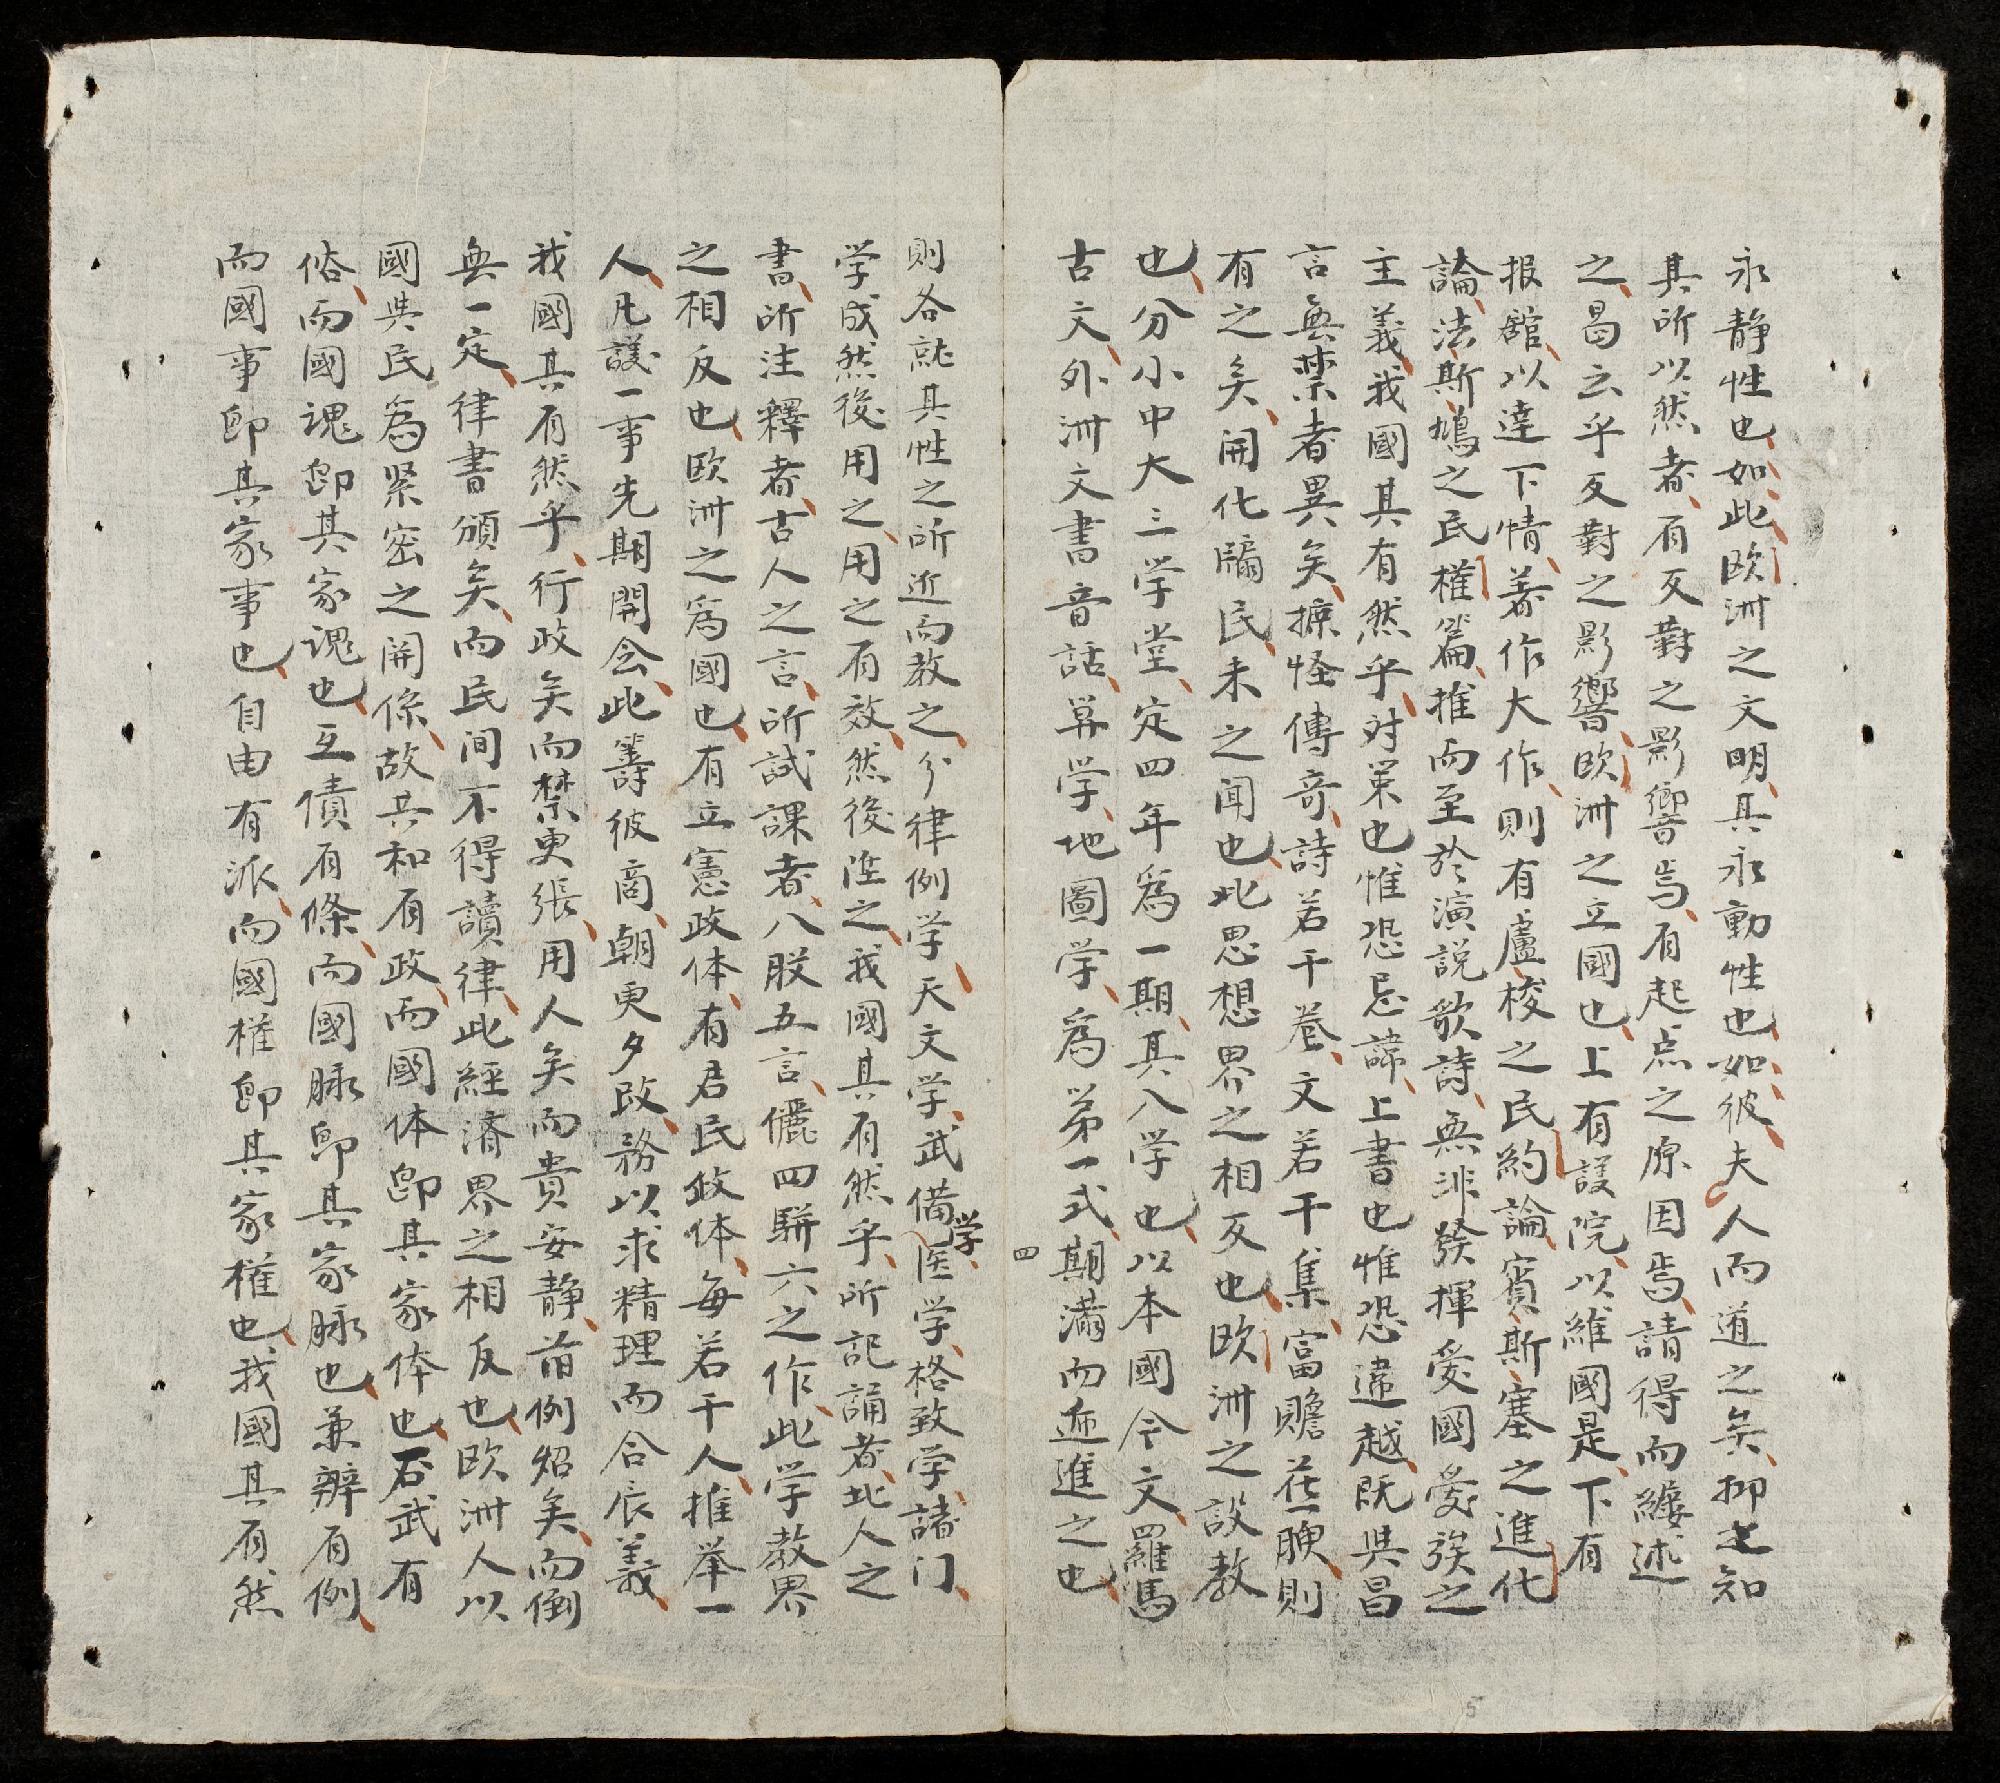 永静性也如此欧洲之文明具永動性也如彼夫人而道之矣抑之知
其所以然者有反對之影響焉有起点之原因焉請得而縷述
之曷云乎反對之影響欧洲之立國也上有議院以維國是下有
报舘以達下情著作大作則有盧梭之民約論賓斯塞之進化
論法斯鳩之民權篇推而至於演説歌詩無非發揮愛國愛族之
主義我國其有然乎对策也惟恐忌諱上書也惟恐違越既與昌
言無禁者異矣摭怪傳奇詩若干卷文若干集富贍在腴則
有之矣開化牖民未之聞也此思想界之相反也欧洲之設教
也分小中大三学堂定四年為一期其八学也以本國今文羅馬
古文外洲文書音話算学地圖学為第一式期滿而遞進之也
四
則各就其性之所近而教之分律例学天文学武備学医学格致学諸门
学成然後用之用之有效然後陞之我國其有然乎所記誦者北人之
書所注釋者古人之言所試課者八股五言儷四駢六之作此学教界
之相反也欧洲之為國也有立憲政体有君民政体每若干人推举一
人凡議一事先期開会此籌彼商朝更夕改務以求精理而合辰義
我國其有然乎行政矣而禁更張用人矣而貴安静首例炤矣而倒
無一定律書頒矣而民间不得讀律此經济界之相反也欧洲人以
國與民為紧密之関係故共和有政而國体即其家体也石武有
俗而國魂即其家魂也互債有條而國脉即其家脉也兼辨有例
而國事即其家事也自由有派而國權即其家權也我國其有然
5